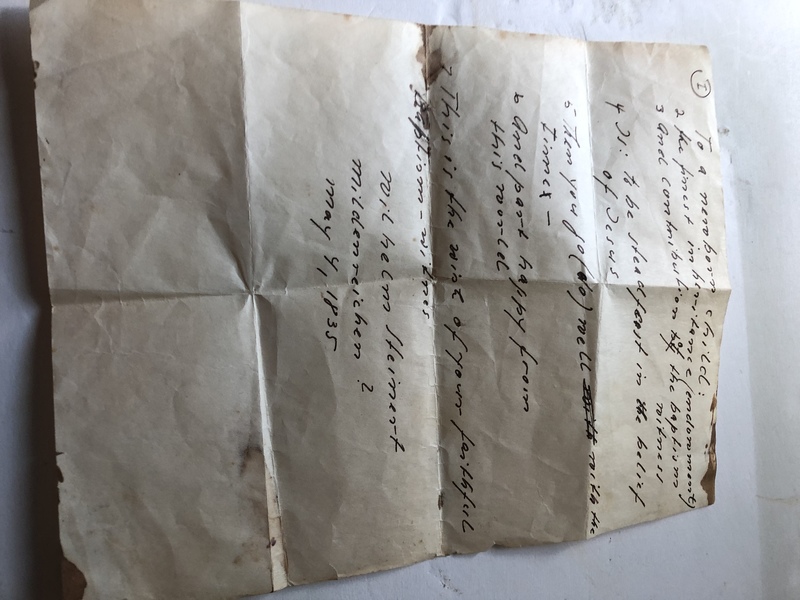 I
To a newborn child:
2 the finest inheritance (endowment)
3 And contribution of the baptism
witness
4 Is: to be steadfast in the belief
of Jesus
5 Then you go (do) well with the
times —
6 And part happy from
this world
7 This is the wish of your faithful
Baptism - witness
Wilhelm Steinert
Mildenreichen ?
May 4, 1835